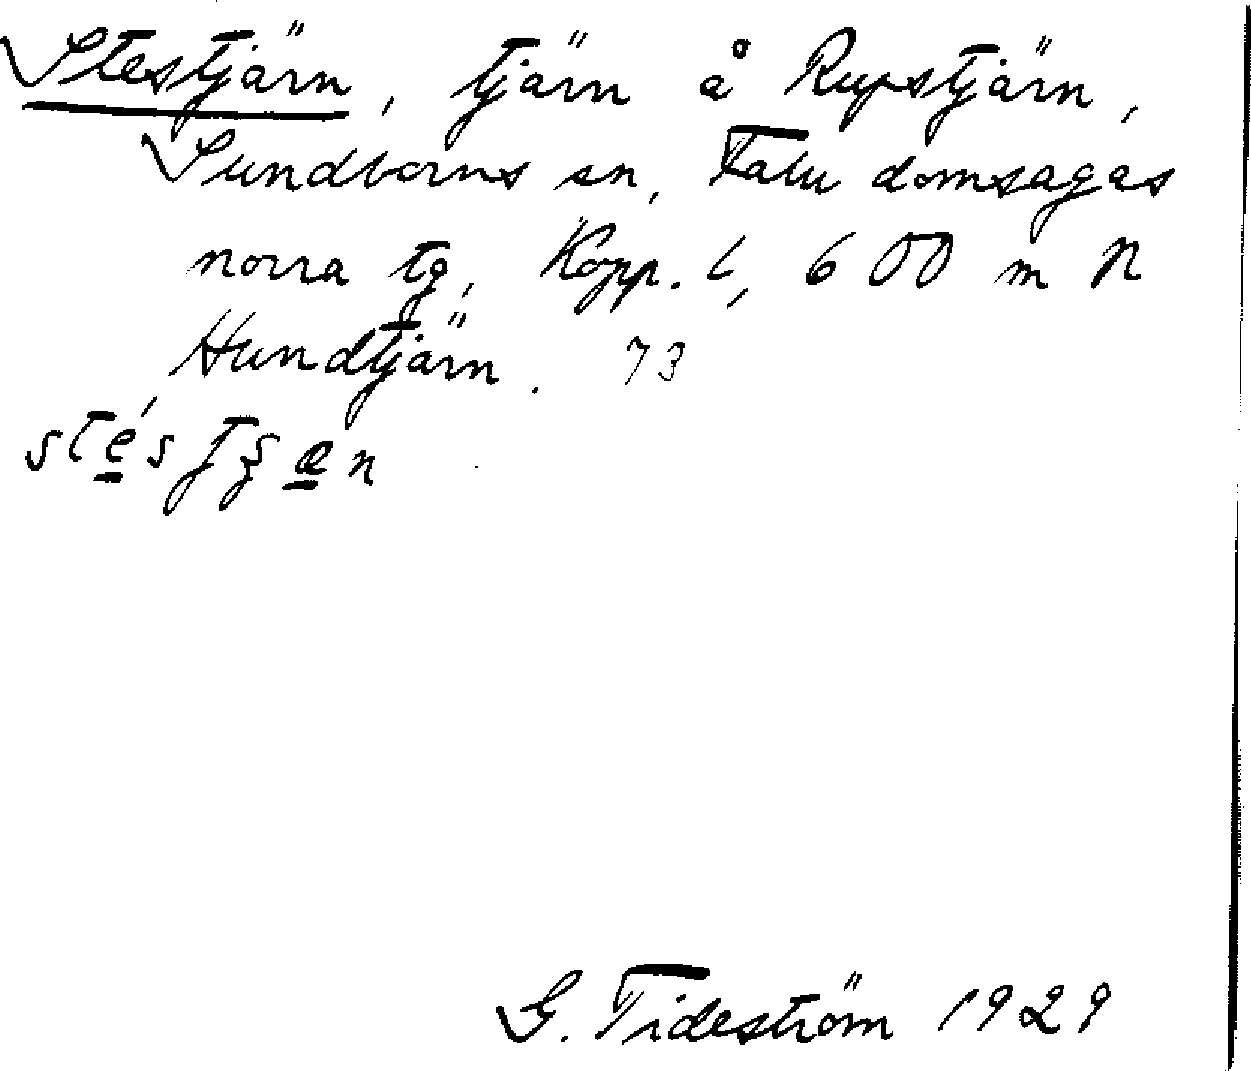 Stestjärn, tjärn å Rupstjärn,
Sundborns sn, Falu domsagas
norra tg, Kopp. l, 600 m N
Hundtjärn. 73
stés
G. Tideström 1929